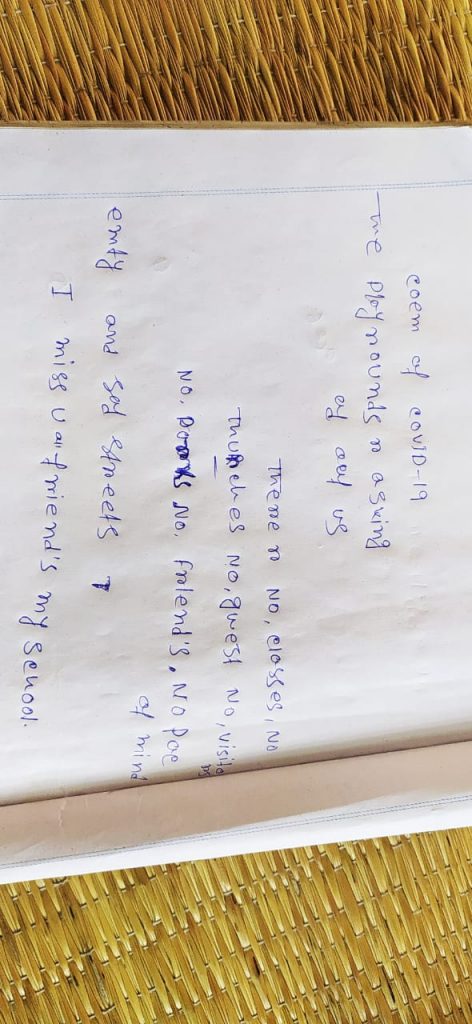 coem of COVID-19
The playnounds n asking
of oay us
There n No, closses, No
Thuches No, guest No, visito
ns
No, Parks No, friend's, No Pae
of mind
emty and say streets
I miss u a friend's my school.